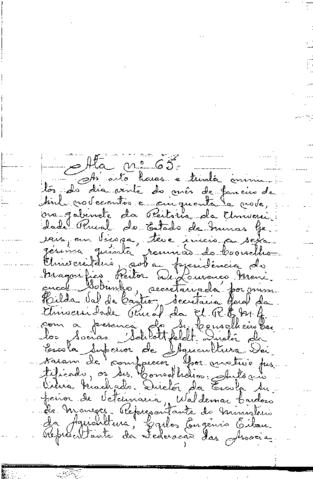 Ata nº 65.
As oito horas e trinta minu-
tos do dia vinte do mês de Janeiro de
mil novecentos e cinquenta e nove,
no gabinete da Reitoria da Universi-
dade Rural do Estado de Minas Ge-
rais, em Viçosa, teve início a sexa-
gésima quinta reunião do Conselho
Universitário sob a presidência do
Magnífico Reitor Dr Lourenço Mene-
gucci Sobrinho, secretariada por mim
Hilda Val de Castro, secretária Geral da
Universidade Rural da U. R. E. M. G.
com a presença do Sr. Conselheiro Car-
los Socias Schlottfeldt, Diretor da
Escola Superior de Agricultura. Dei-
xaram de comparecer por motivo jus-
tificado, os Srs. Conselheiros: Antônio
Vieira Machado, Diretor da Escola Su-
perior de Veterinária, Waldemar Cardoso
de Menezes, Representante do Ministério
da Agricultura, Carlos Eugênio
Representante da Federação das Associa-